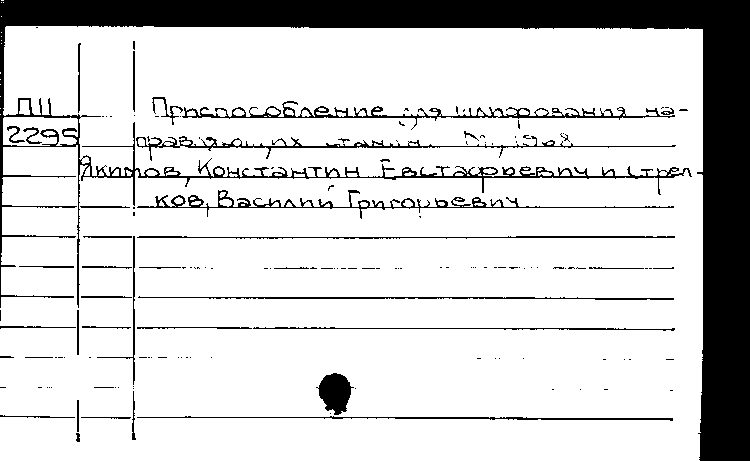 ПII Приспособление для шлифования на-
2295 правляющих станин. М., 1968
Якимов, Константин Евстафьевич и Стрел-
ков, Василий Григорьевич